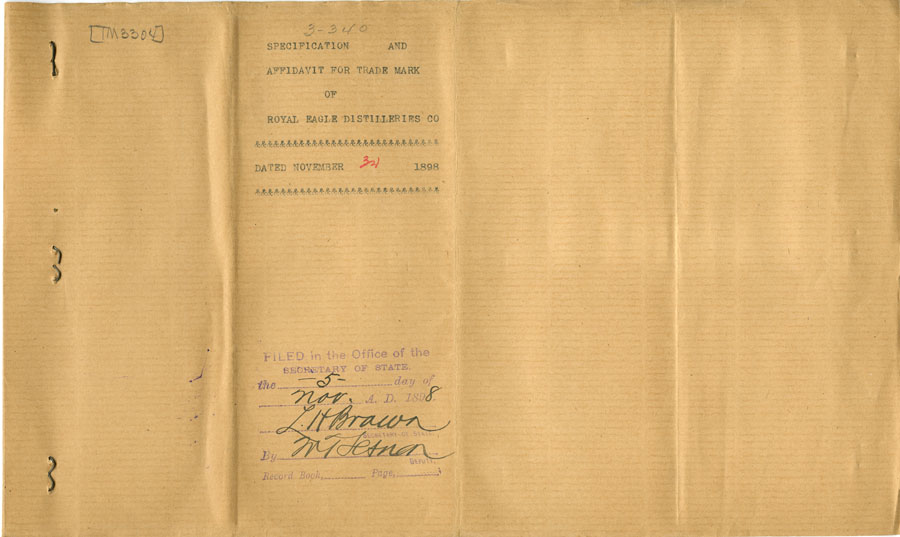 [TM3304]
3-340
SPECIFICATION AND
AFFIDAVIT FOR TRADE MARK
OF
ROYAL EAGLE DISTILLERIES CO
DATED NOVEMBER 1898
FILED in the Office of the
SECRETARY OF STATE.
the -5- day of
Nov. A. D. 1898
L. H Brown
SECRETARY OF STATE
By
DEPUTY.
Record Book, Page,